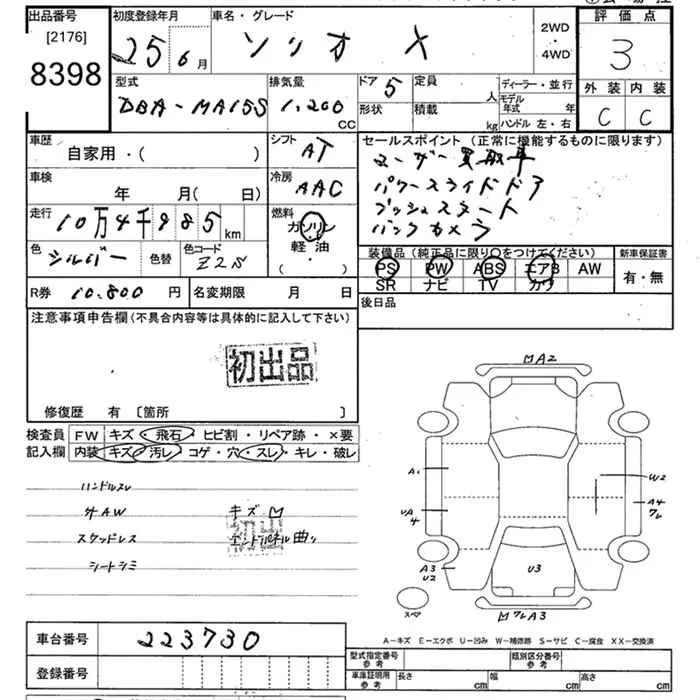 出品番号
[2176]
8398
初度登録年月
25 6月
車名・グレード
ソリオ X
2WD
・
4WD
評価点
3
外装 内装
C C
型式
DBA-MA15S
排気量
1,200
CC
ドア 5
定員
人
形状
積載
kg
ディーラー・並行
モデル年式 年
ハンドル 左・右
車歴
自家用・( )
シフト
AT
車検
年 月( 日)
冷房
AAC
走行
10万4千985 km
燃料
ガソリン
・
軽油
( ・ )
色
シルバー
色替
色コード
Z2S
R券 10.800 円
名変期限 月 日
セールスポイント(正常に機能するものに限ります)
ユーザー買取車
パワースライドドア
プッシュスタート
バックカメラ
装備品(純正品に限り〇をつけてください)
新車保証書
PS PW ABS エアB AW
SR ナビ TV カワ
有・無
後日品
注意事項申告欄(不具合内容等は具体的に記入して下さい)
初出品
修復歴 有 〔箇所 〕
検査員
記入欄
FW キズ・飛石・ヒビ割・リペア跡・×要
内装 キズ・汚レ・コゲ・穴・スレ・キレ・破レ
ハンドルスレ
外AW
キズ凹
スタッドレス
初出
エンドパネル曲リ
シートシミ
凹A2
A1
W2
A4
ワレ
UA
4
A3
U2
U3
スペア
凹ワレA3
A−キズ E−エクボ U−凹み W−補修跡 S−サビ C−腐食 XX−交換済
車台番号 223730
登録番号
型式指定番号
参考
類別区分番号
参考
車庫証明用
参考
長さ cm
幅 cm
高さ cm